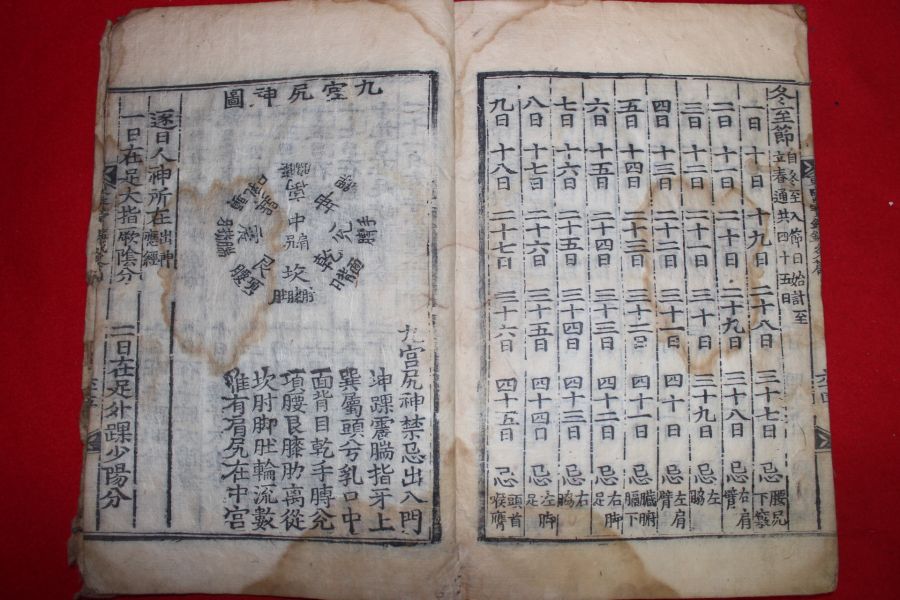 冬至節 自冬至入節日始計至立春通共四十五日
一日 十日 十九日 二十八日 三十七日 忌 腰尻下竅
二日 十一日 二十日 二十九日 三十八日 忌 右肩臂
三日 十二日 二十一日 三十日 三十九日 忌 左脇
四日 十三日 二十二日 三十一日 四十日 忌 左肩臂
五日 十四日 二十三日 三十二日 四十一日 忌 臟腑膈下
六日 十五日 二十四日 三十三日 四十二日 忌 右脚足
七日 十六日 二十五日 三十四日 四十三日 忌 右脇
八日 十七日 二十六日 三十五日 四十四日 忌 左脚足
九日 十八日 二十七日 三十六日 四十五日 忌 頭首喉膺
九宮尻神圖
中肩尻
坎
乾
震
艮
九宮尻神禁忌出入門
坤踝震腨指牙上
巽屬頭兮乳口中
面背目乾手膊兌
項腰艮膝肋离從
坎肘脚肚輪流數
惟有肩尻在中宮
逐日人神所在 出神應經
一日在足大指厥陰分 二日在足外踝少陽分